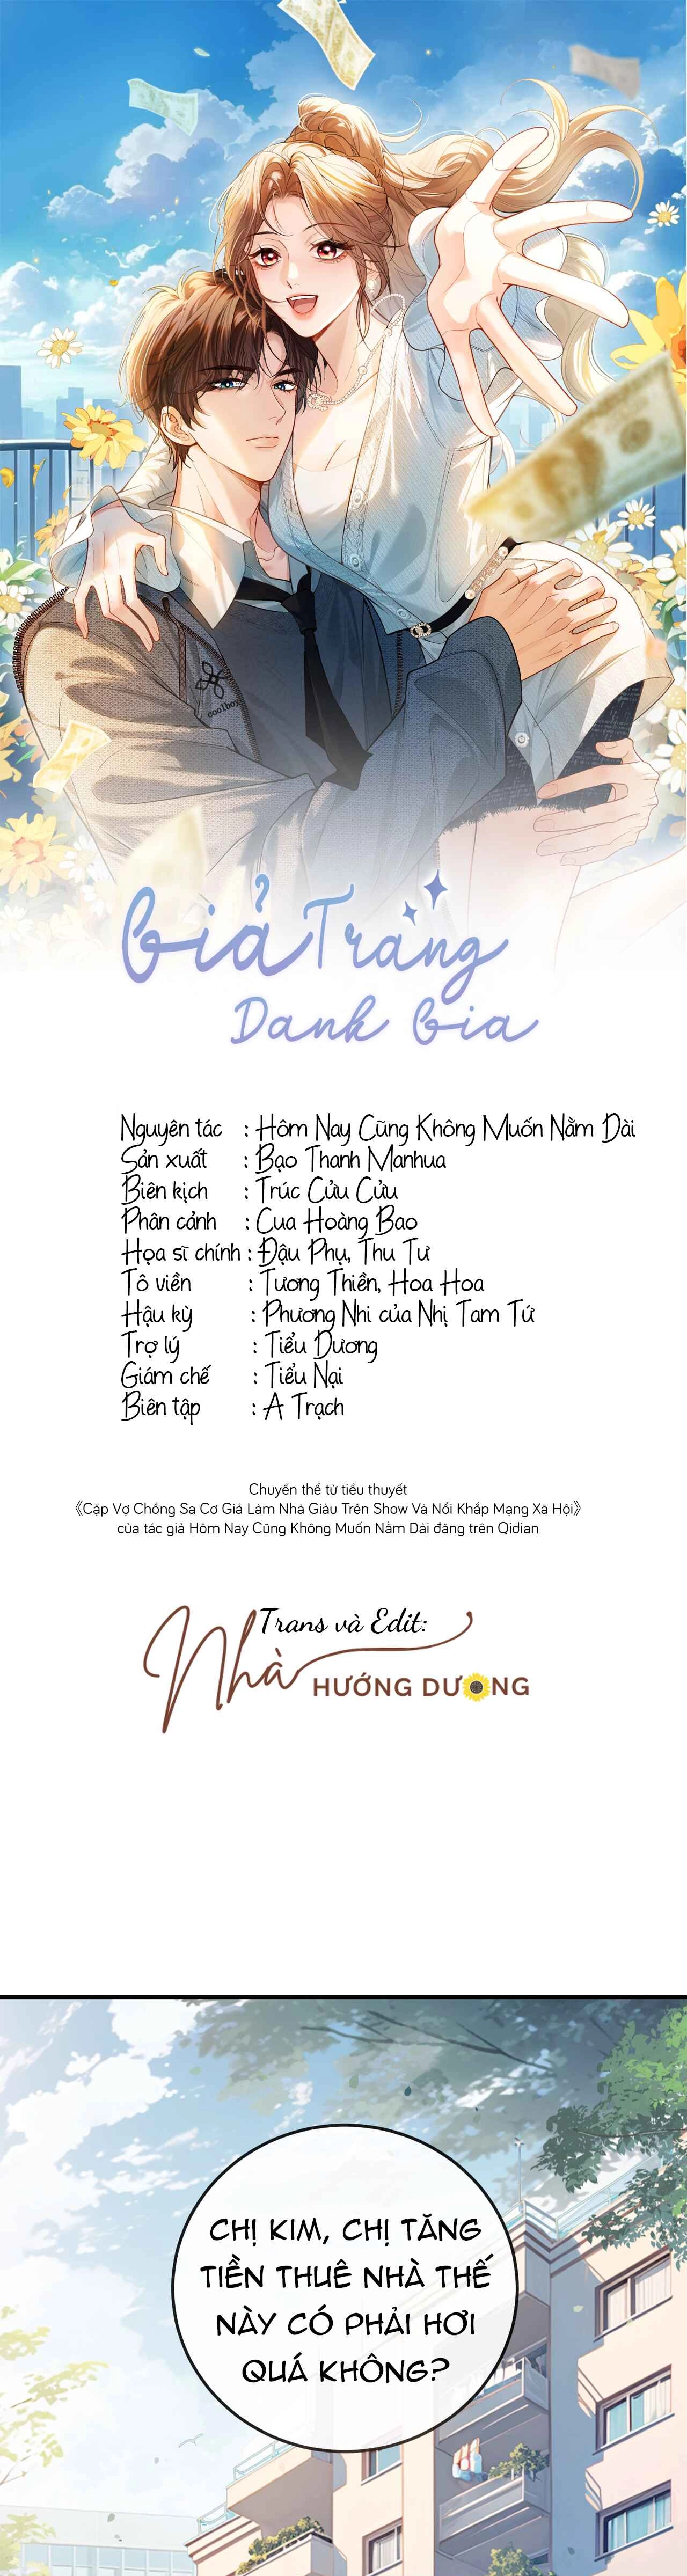 coolboy
Giả Trang
Danh Gia
Nguyên tác : Hôm Nay Cũng Không Muốn Nằm Dài
Sản xuất : Bạo Thanh Manhua
Biên kịch : Trúc Cửu Cửu
Phân cảnh : Cua Hoàng Bao
Họa sĩ chính : Đậu Phụ, Thu Tư
Tô viền : Tương Thiền, Hoa Hoa
Hậu kỳ : Phương Nhi của Nhị Tam Tứ
Trợ lý : Tiểu Dương
Giám chế : Tiểu Nại
Biên tập : A Trạch
Chuyển thể từ tiểu thuyết
《Cặp Vợ Chồng Sa Cơ Giả Làm Nhà Giàu Trên Show Và Nổi Khắp Mạng Xã Hội》
của tác giả Hôm Nay Cũng Không Muốn Nằm Dài đăng trên Qidian
Trans và Edit:
Nhà HƯỚNG DƯƠNG
CHỊ KIM, CHỊ TĂNG
TIỀN THUÊ NHÀ THẾ
NÀY CÓ PHẢI HƠI
QUÁ KHÔNG?